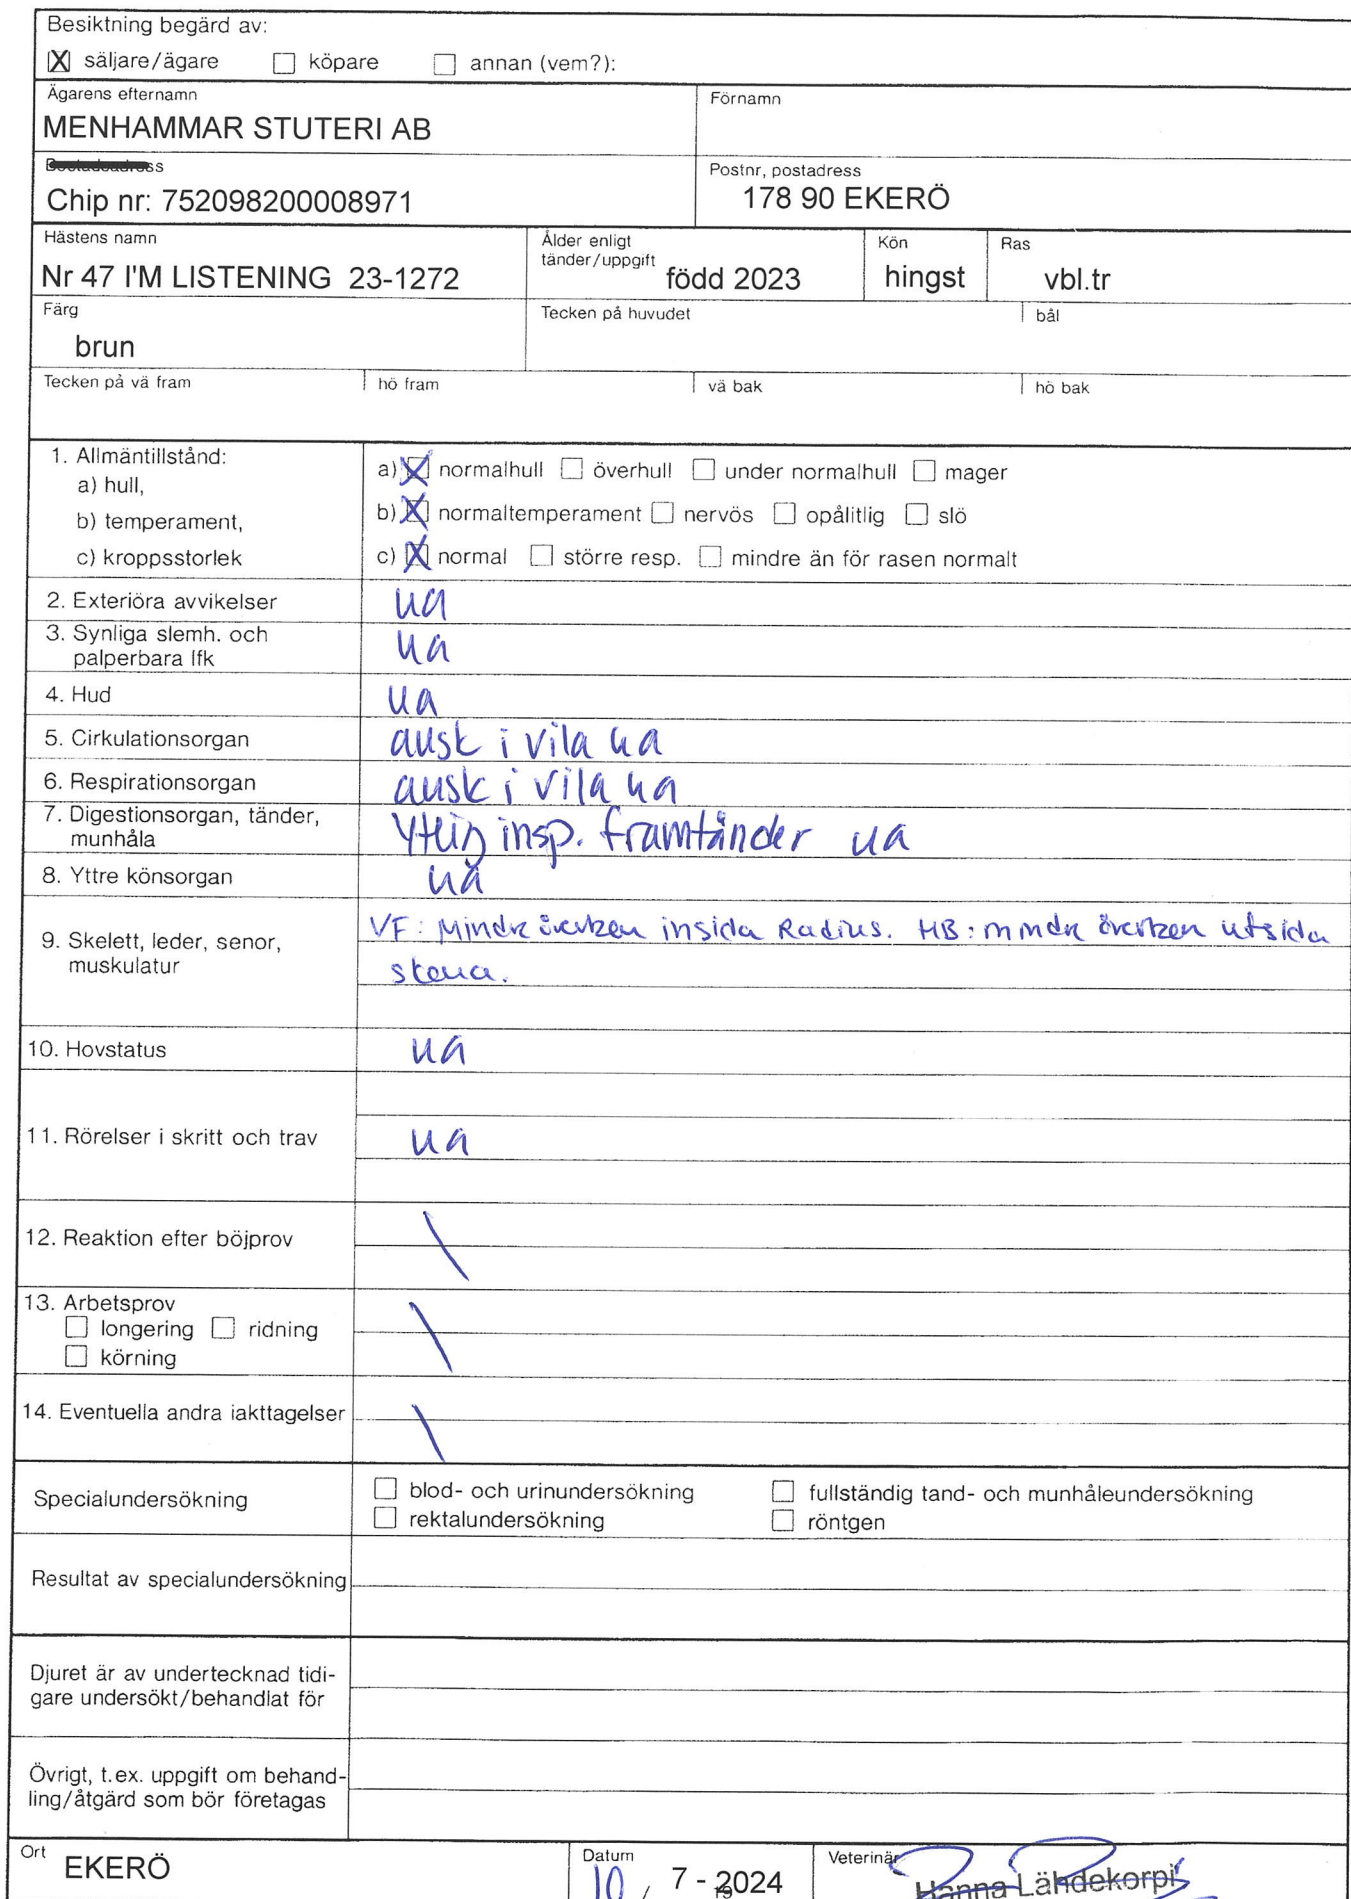 Besiktning begärd av:
X säljare/ägare köpare annan (vem?):
Ägarens efternamn Förnamn
MENHAMMAR STUTERI AB
Postnr, postadress
Chip nr: 752098200008971 178 90 EKERÖ
Hästens namn Ålder enligt tänder/uppgift Kön Ras
Nr 47 I'M LISTENING 23-1272 född 2023 hingst vbl.tr
Färg Tecken på huvudet bål
brun
Tecken på vä fram hö fram vä bak hö bak
1. Allmäntillstånd:
a) hull, a) X normalhull överhull under normalhull mager
b) temperament, b) X normaltemperament nervös opålitlig slö
c) kroppsstorlek c) X normal större resp. mindre än för rasen normalt
2. Exteriöra avvikelser ua
3. Synliga slemh. och
palperbara lfk ua
4. Hud ua
5. Cirkulationsorgan ausk i vila ua
6. Respirationsorgan ausk i vila ua
7. Digestionsorgan, tänder,
munhåla Ytlig insp. framtänder ua
8. Yttre könsorgan ua
9. Skelett, leder, senor,
muskulatur
VF: Mindre överben insida Radius. HB: mindre överben utsida
skena.
10. Hovstatus ua
11. Rörelser i skritt och trav ua
12. Reaktion efter böjprov \
13. Arbetsprov \
longering ridning
körning
14. Eventuella andra iakttagelser \
Specialundersökning
blod- och urinundersökning fullständig tand- och munhåleundersökning
rektalundersökning röntgen
Resultat av specialundersökning
Djuret är av undertecknad tidi-
gare undersökt/behandlat för
Övrigt, t.ex. uppgift om behand-
ling/åtgärd som bör företagas
Ort Datum Veterinär
EKERÖ 10 / 7 - 2024 Hanna Lähdekorpi